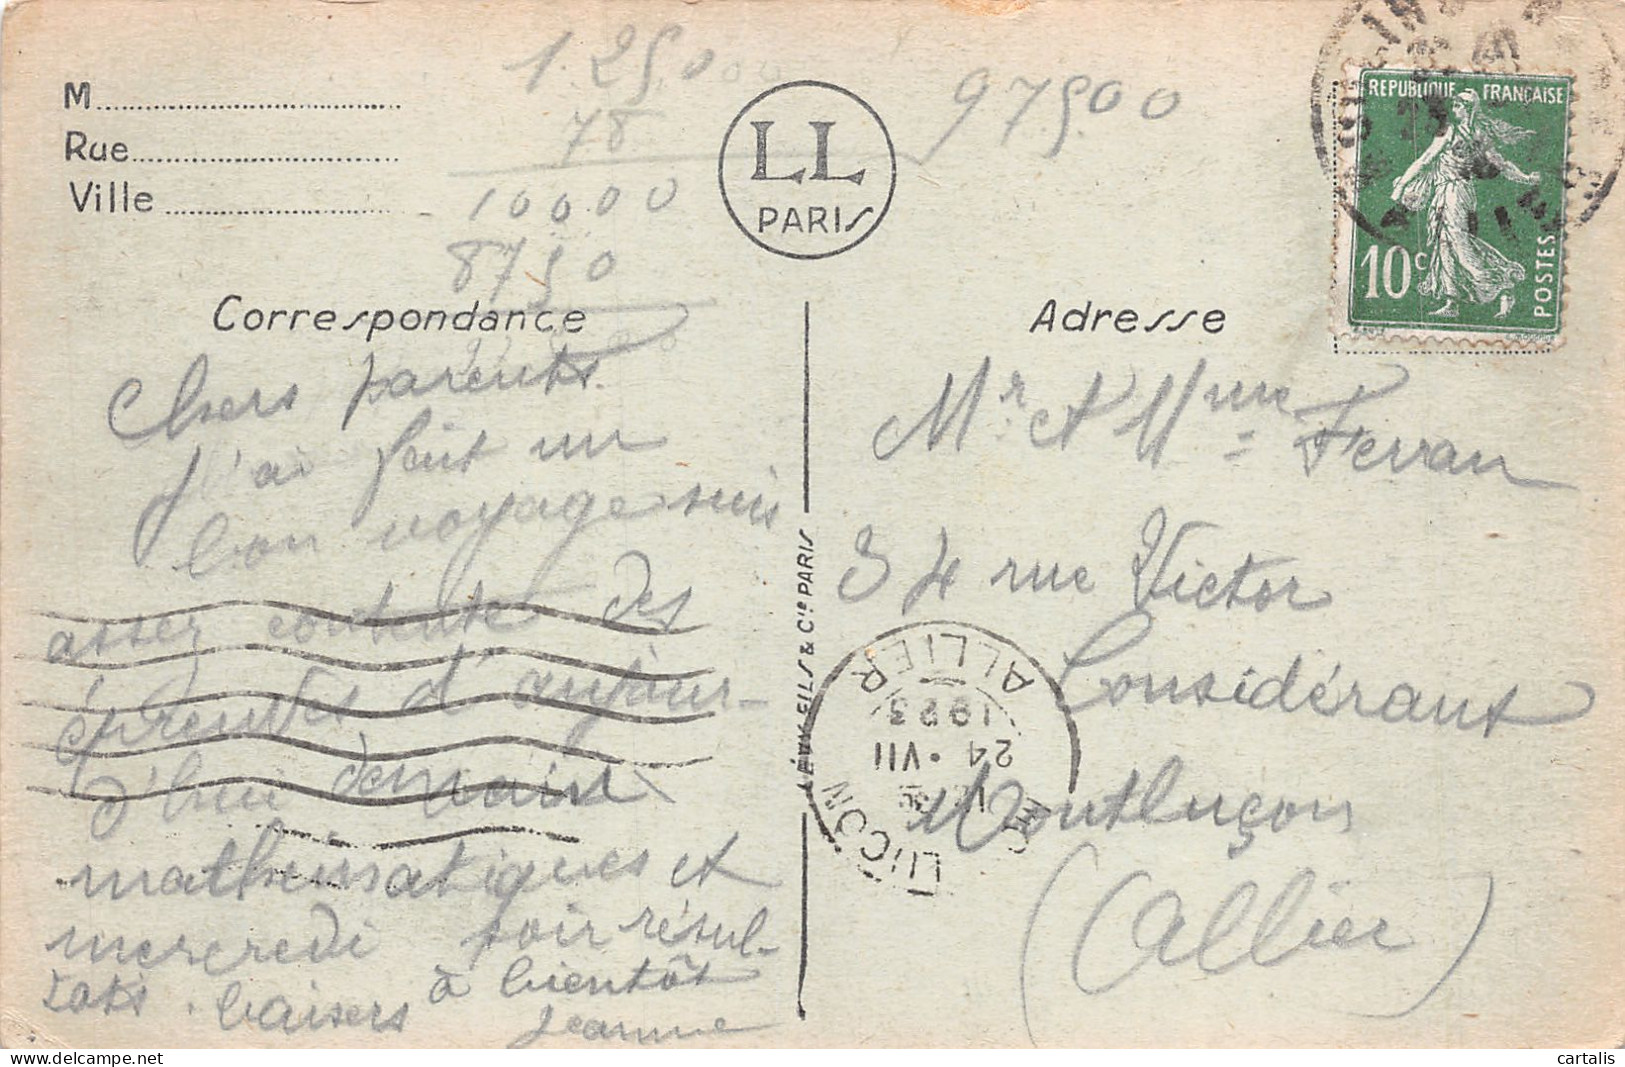 M
Rue
Ville
1.25000
78
10000
8750
97500
LL
PARIS
REPUBLIQUE FRANÇAISE
10c
POSTES
Correspondance
Adresse
Chers parents.
J'ai fait un
bon voyage suis
assez contente des
épreuves d'aujour-
d'hui demain
mathématiques et
mercredi soir résul-
tats. baisers à bientôt
Jeanne
LÉVY FILS & Cie PARIS
Mr et Mme Ferran
34 rue Victor
Considérant
Montluçon
(Allier)
ALLIER
1923
24 · VII
LUÇON
cartalis